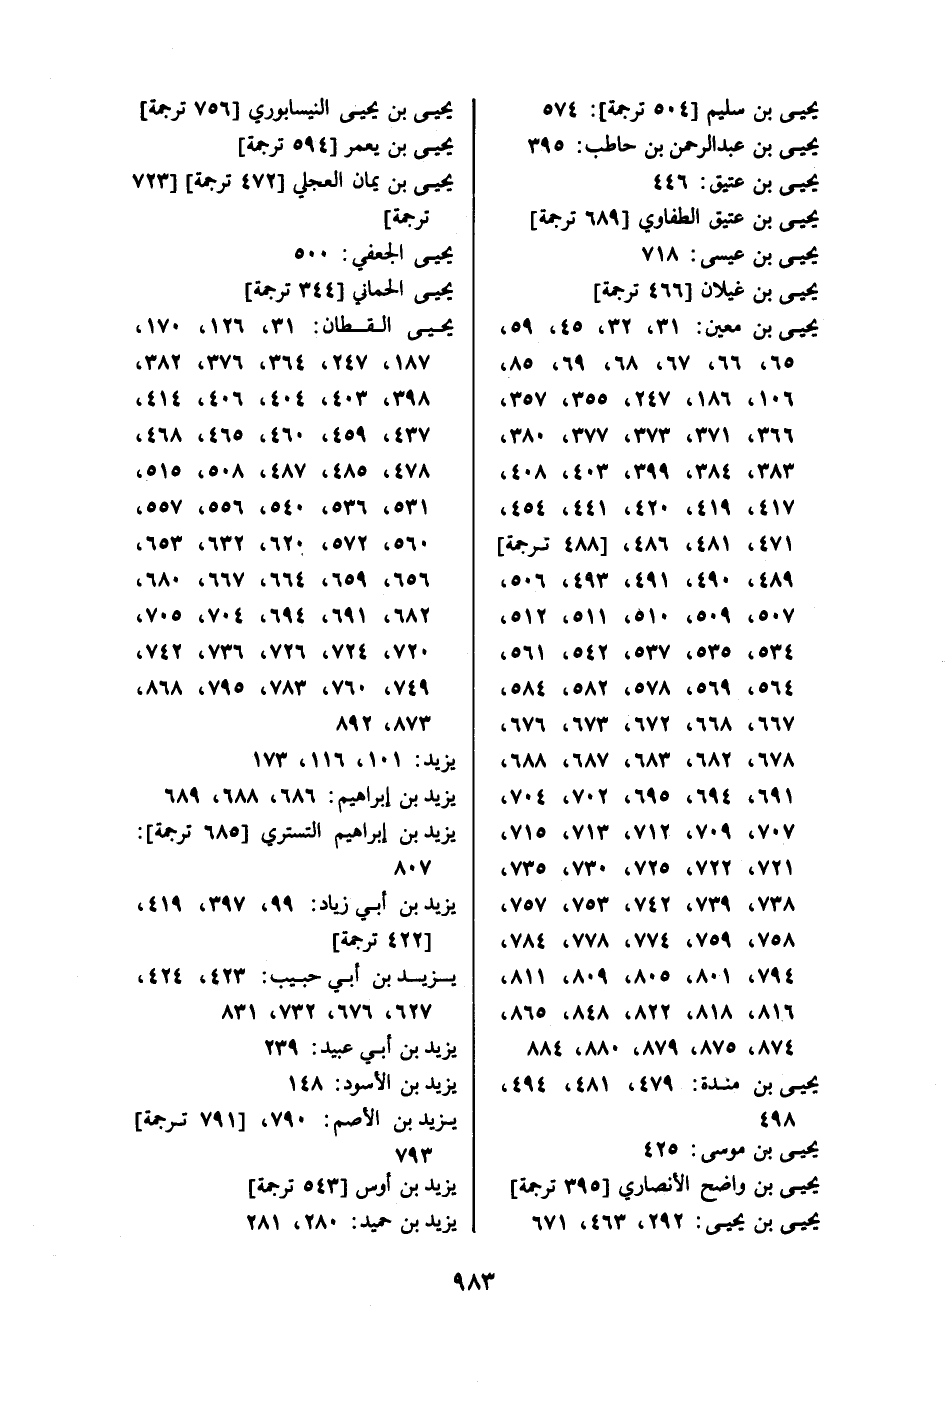 يحيى بن سليم [٥٠٤ ترجمة]: ٥٧٤
يحيى بن عبدالرحمن بن حاطب: ٣٩٥
يحيى بن عتيق: ٤٤٦
يحيى بن عتيق الطفاوي [٦٨٩ ترجمة]
يحيى بن عيسى: ٧١٨
يحيى بن غيلان [٤٦٦ ترجمة]
يحيى بن معين: ٣١، ٣٢، ٤٥، ٥٩،
٦٥، ٦٦، ٦٧، ٦٨، ٦٩، ٨٥،
١٠٦، ١٨٦، ٢٤٧، ٣٥٥، ٣٥٧،
٣٦٦، ٣٧١، ٣٧٣، ٣٧٧، ٣٨٠،
٣٨٣، ٣٨٤، ٣٩٩، ٤٠٣، ٤٠٨،
٤١٧، ٤١٩، ٤٢٠، ٤٤١، ٤٥٤،
٤٧١، ٤٨١، ٤٨٦، [٤٨٨ ترجمة]
٤٨٩، ٤٩٠، ٤٩١، ٤٩٣، ٥٠٦،
٥٠٧، ٥٠٩، ٥١٠، ٥١١، ٥١٢،
٥٣٤، ٥٣٥، ٥٣٧، ٥٤٢، ٥٦١،
٥٦٤، ٥٦٩، ٥٧٨، ٥٨٢، ٥٨٤،
٦٦٧، ٦٦٨، ٦٧٢، ٦٧٣، ٦٧٦،
٦٧٨، ٦٨٢، ٦٨٣، ٦٨٧، ٦٨٨،
٦٩١، ٦٩٤، ٦٩٥، ٧٠٢، ٧٠٤،
٧٠٧، ٧٠٩، ٧١٢، ٧١٣، ٧١٥،
٧٢١، ٧٢٢، ٧٢٥، ٧٣٠، ٧٣٥،
٧٣٨، ٧٣٩، ٧٤٢، ٧٥٣، ٧٥٧،
٧٥٨، ٧٥٩، ٧٧٤، ٧٧٨، ٧٨٤،
٧٩٤، ٨٠١، ٨٠٥، ٨٠٩، ٨١١،
٨١٦، ٨١٨، ٨٢٢، ٨٤٨، ٨٦٥،
٨٧٤، ٨٧٥، ٨٧٩، ٨٨٠، ٨٨٤
يحيى بن مندة: ٤٧٩، ٤٨١، ٤٩٤،
٤٩٨
يحيى بن موسى: ٤٢٥
يحيى بن واضح الأنصاري [٣٩٥ ترجمة]
يحيى بن يحيى: ٢٩٢، ٤٦٣، ٦٧١
يحيى بن يحيى النيسابوري [٧٥٦ ترجمة]
يحيى بن يعمر [٥٩٤ ترجمة]
يحيى بن يمان العجلي [٤٧٢ ترجمة] [٧٢٣
ترجمة]
يحيى الجعفي: ٥٠٠
يحيى الحماني [٣٤٤ ترجمة]
يحيى القطان: ٣١، ١٢٦، ١٧٠،
١٨٧، ٢٤٧، ٣٦٤، ٣٧٦، ٣٨٢،
٣٩٨، ٤٠٣، ٤٠٤، ٤٠٦، ٤١٤،
٤٣٧، ٤٥٩، ٤٦٠، ٤٦٥، ٤٦٨،
٤٧٨، ٤٨٥، ٤٨٧، ٥٠٨، ٥١٥،
٥٣١، ٥٣٦، ٥٤٠، ٥٥٦، ٥٥٧،
٥٦٠، ٥٧٢، ٦٢٠، ٦٣٢، ٦٥٣،
٦٥٦، ٦٥٩، ٦٦٤، ٦٦٧، ٦٨٠،
٦٨٢، ٦٩١، ٦٩٤، ٧٠٤، ٧٠٥،
٧٢٠، ٧٢٤، ٧٢٦، ٧٣٦، ٧٤٢،
٧٤٩، ٧٦٠، ٧٨٣، ٧٩٥، ٨٦٨،
٨٧٣، ٨٩٢
يزيد: ١٠١، ١١٦، ١٧٣
يزيد بن إبراهيم: ٦٨٦، ٦٨٨، ٦٨٩
يزيد بن إبراهيم التستري [٦٨٥ ترجمة]:
٨٠٧
يزيد بن أبي زياد: ٩٩، ٣٩٧، ٤١٩،
[٤٢٢ ترجمة]
يزيد بن أبي حبيب: ٤٢٣، ٤٢٤،
٦٢٧، ٦٧٦، ٧٣٢، ٨٣١
يزيد بن أبي عبيد: ٢٣٩
يزيد بن الأسود: ١٤٨
يزيد بن الأصم: ٧٩٠، [٧٩١ ترجمة]
٧٩٣
يزيد بن أوس [٥٤٣ ترجمة]
يزيد بن حميد: ٢٨٠، ٢٨١
٩٨٣